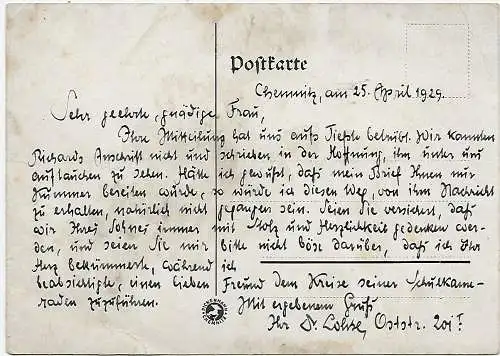 Postkarte
Chemnitz, am 25. April 1929.
Sehr geehrte, gnädige Frau,
Ihre Mitteilung hat uns aufs Tiefste betrübt. Wir kannten
Richards Anschrift nicht und schrieben in der Hoffnung, ihn unter uns
auftauchen zu sehen. Hätte ich gewußt, daß mein Brief Ihnen nur
Kummer bereiten würde, so würde ich diesen Weg, von ihm Nachricht
zu erhalten, natürlich nicht gegangen sein. Seien Sie versichert, daß
wir Ihres Sohnes immer mit Stolz und Herzlichkeit gedenken wer-
den, und seien Sie mir bitte nicht böse darüber, daß ich Ihr
Herz bekümmerte, während ich
beabsichtigte, einen lieben Freund dem Kreise seiner Schulkame-
raden zuzuführen.
Mit ergebenem Gruß
Ihr Dr. Lohse, Oststr.